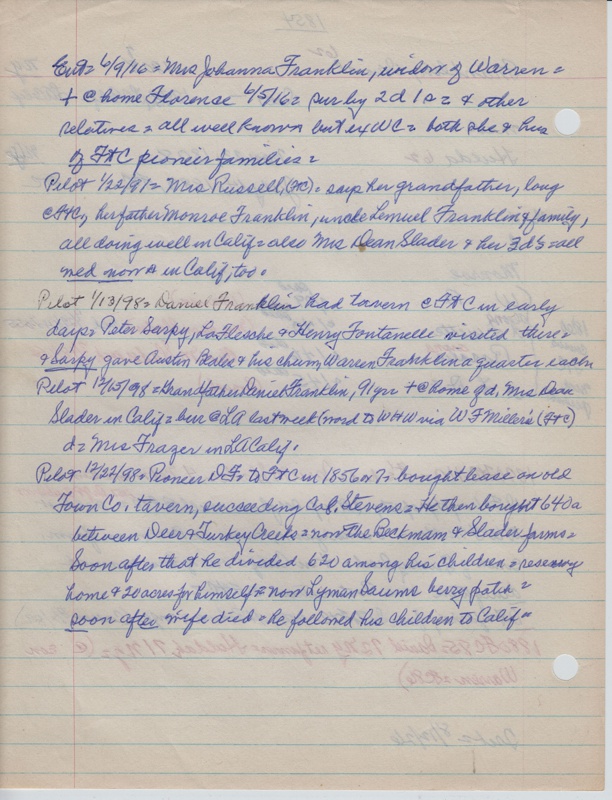 Ent= 6/9/16= Mrs Johanna Franklin, widow of Warren=
+ @ home Florence 6/5/16= sur by 2d 1s= & other
relatives= all well known but ex WC= both she & hus
of Ft C pioneer families=
Pilot 1/22/91= Mrs Russell, (FtC)= says her grandfather, long
@ FtC, her father Monroe Franklin, uncle Lemuel Franklin & family,
all doing well in Calif= also Mrs Dean Slader & her 3d's= all
med now & in Calif, too.
Pilot 1/13/98= Daniel Franklin had tavern @ FtC in early
days= Peter Sarpy, LaFlesche & Henry Fontanelle visited there=
& Sarpy gave Austin Beales & his chum, Warren Franklin a quarter each=
Pilot 12/15/98= Grandfather Daniel Franklin, 91 yrs + @ home of d, Mrs Dean
Slader in Calif= bur @ LA last week (word to WHW via W F Miller's (FtC)
d= Mrs Frazer in LA Calif.
Pilot 12/22/98= Pioneer D.F. to FtC in 1856 or 7= bought lease on old
Town Co. tavern, succeeding Col. Stevens= He then bought 640a
between Deer & Turkey Creeks= now the Beckman & Slader farms=
Soon after that he divided 620 among his children= reserving
home & 20 acres for himself= now Lyman Saums berry patch=
soon after wife died= he followed his children to Calif=